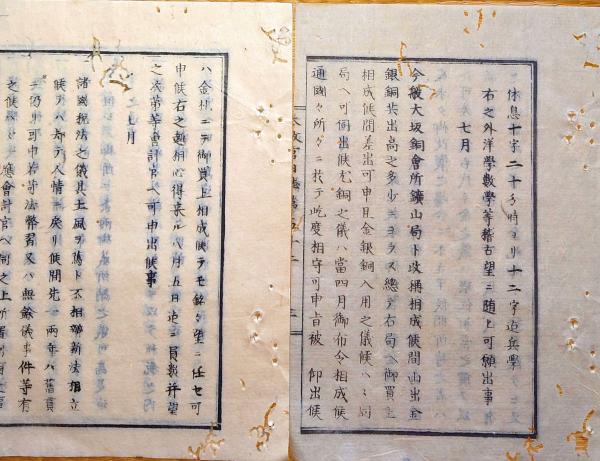 休息十字二十分時ヨリ十二字迄兵學
右之外洋學數學等稽古望ニ随ヒ可願出事
七月
今般大坂銅會所鑛山局ト改稱相成候間山出金
銀銅共出高之多少ニヨラス總テ右局ヘ御買上
相成候間差出可申且金銀銅入用之儀候ヘハ同
局ヘ可伺出候尤銅之儀ハ當四月御布令相成候
通國々所々ニ於テ屹度相守可申旨被 仰出候
ハ金札ニテ御買上相成候テモ銘々望ニ任セ可
申候右之趣相心得来ル八月五日迄ニ員數并望
之次第等會計官ヘ可申出候事
七月
諸國税法之儀其土風ヲ篤ト不相辨新法相立
候テハ却テ人情ニ戻リ候間先一両年ハ舊貫
ニ仍リ可申若苛法弊習又ハ無餘儀事件等有
之候